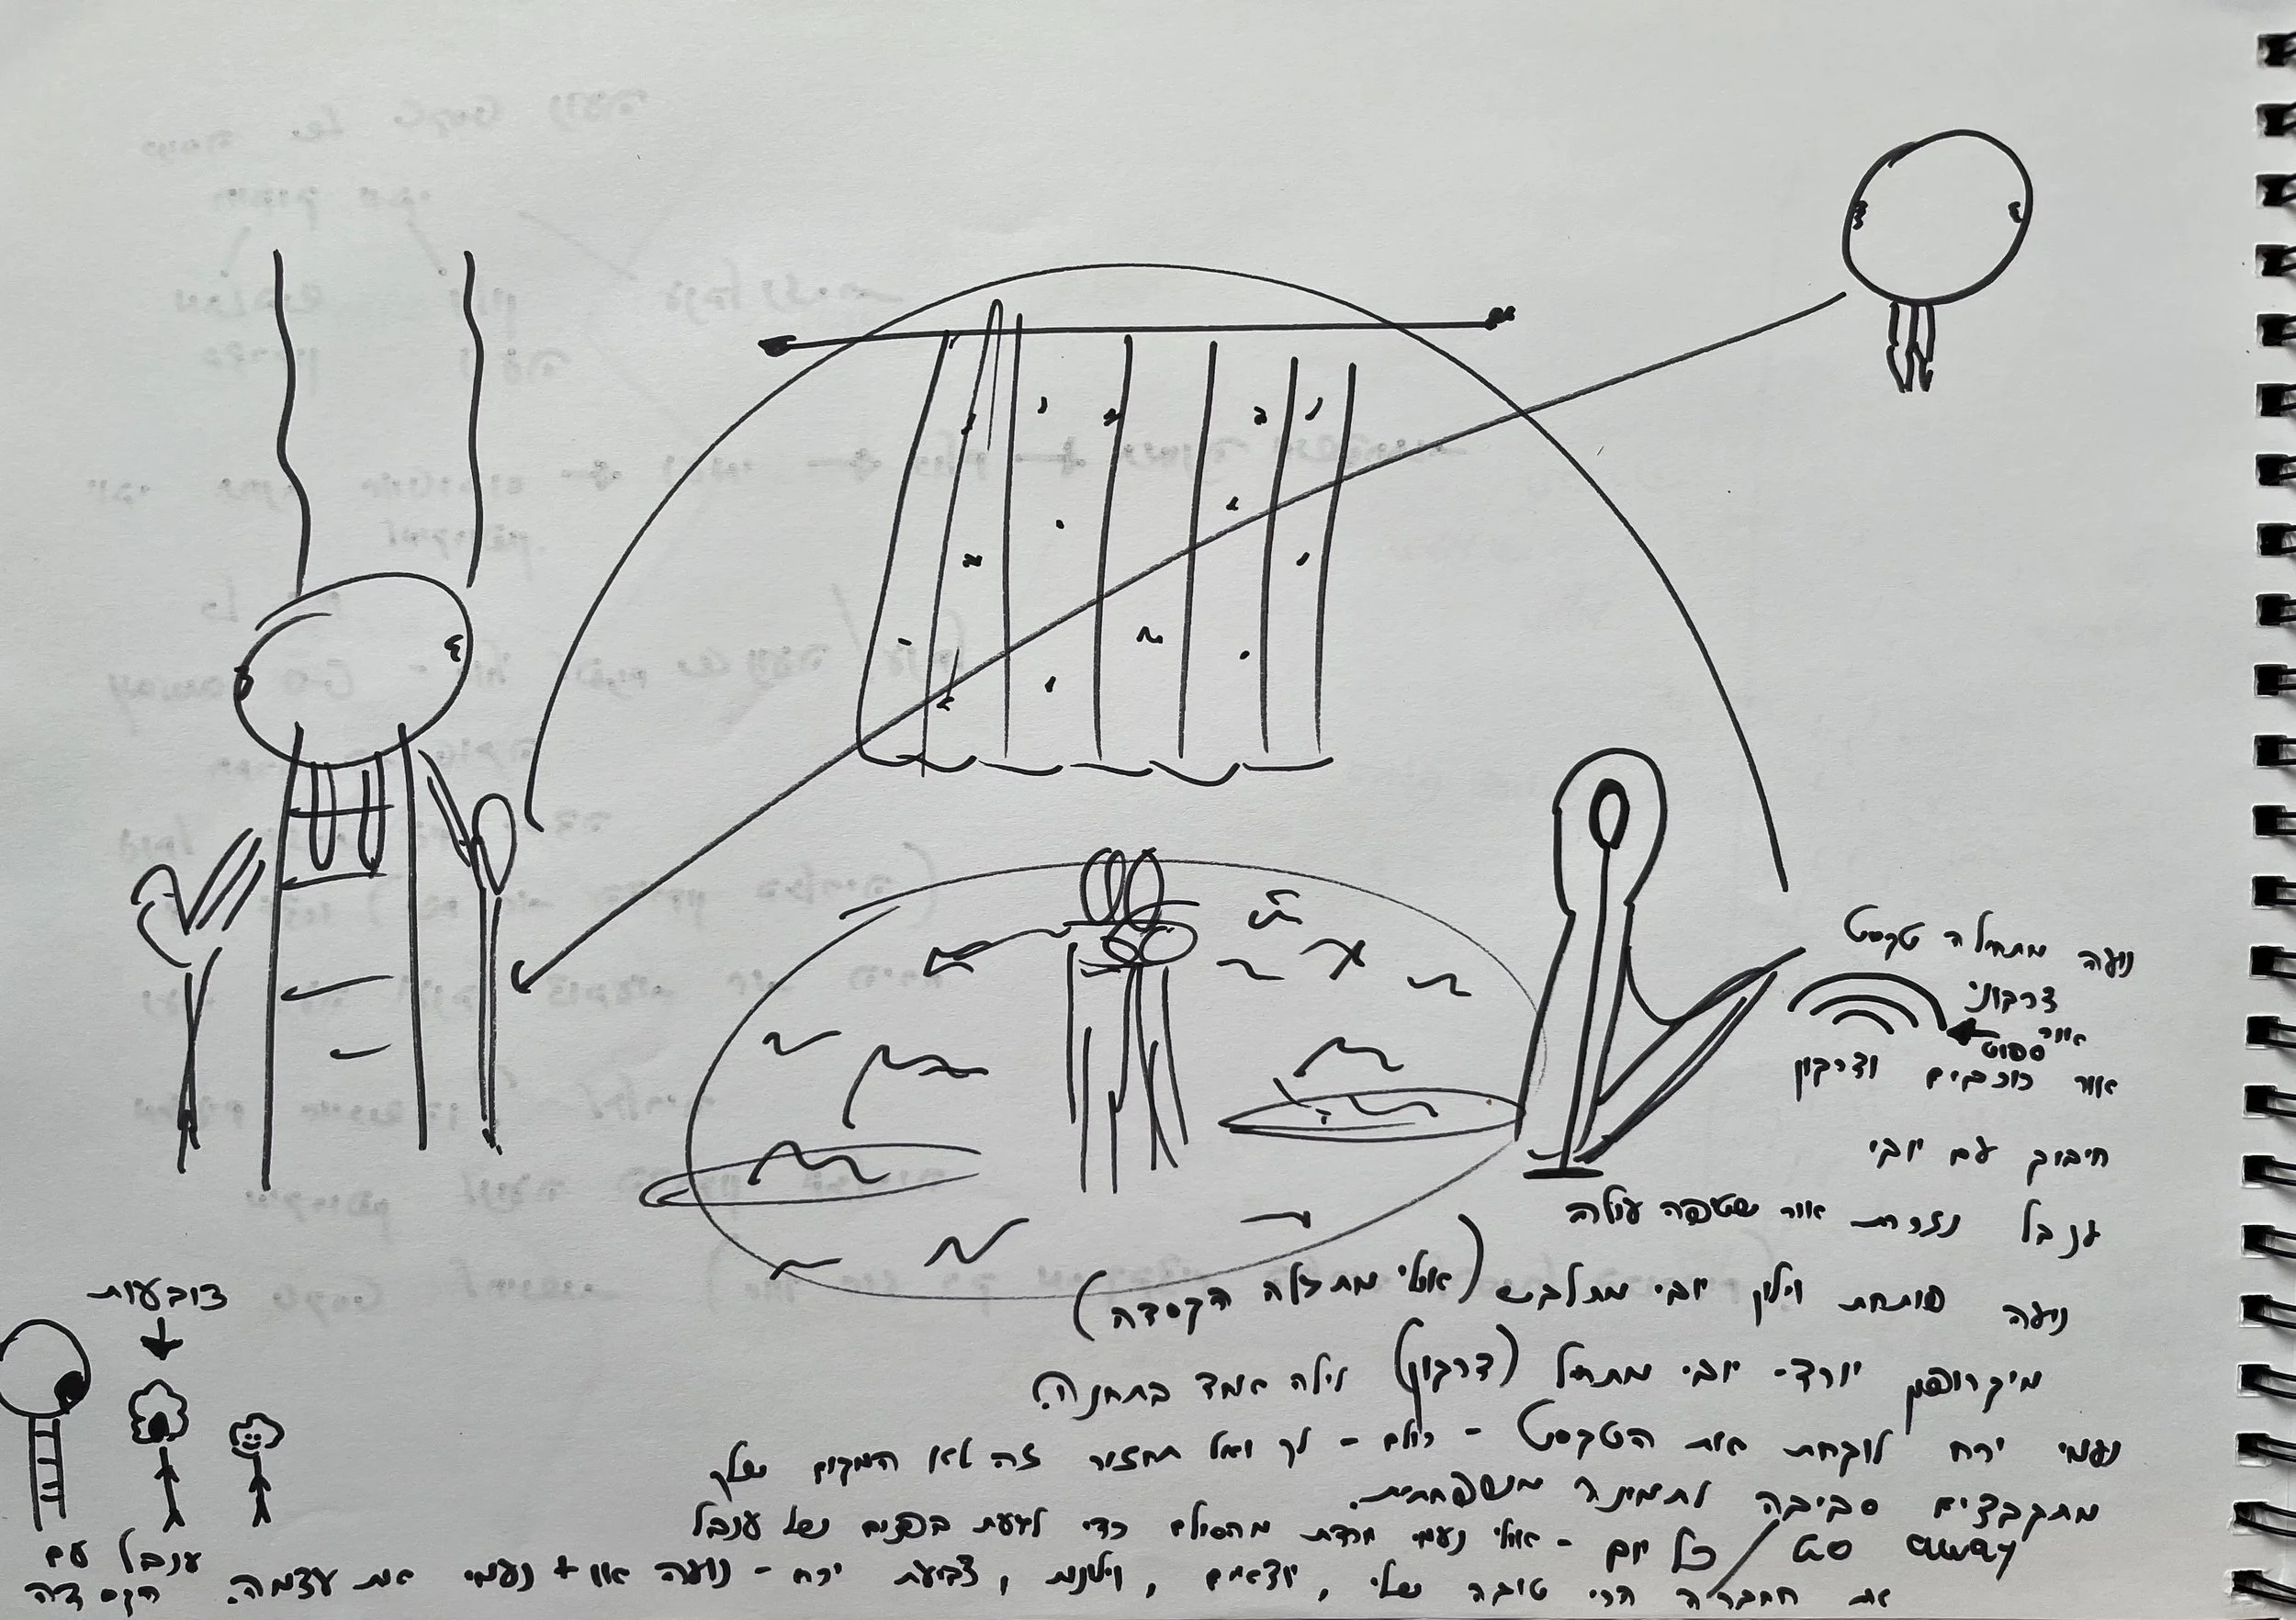 נועה מתחילה טקסט
דרבוני
אור ספוט
אור כוכבים ודרבון
חיבוק עם יובי
ענבל נזרת אור שטפה עולה
נועה פותחת וילון יובי מתלבש (אולי מתחילה הקסדה)
מיקרופון יורד - יובי מתחיל (דרבון) וילה אמד בתחנה?
נעמי ירח לוקחת את הטקסט - כולם - לך ואל תחזור זה לא המקום שלך
מתקבצים סביבה לתמינה משפחתית.
away סט / כל יום - אולי נעמי יורדת מהסולם כדי לגעת בפנים של ענבל
את חברה הכי טובה שלי, יוצאים, וילונות, צביעת ירח - נועה או + נעמי את עצמה.
צובעות
ענבל עם
הקסדה